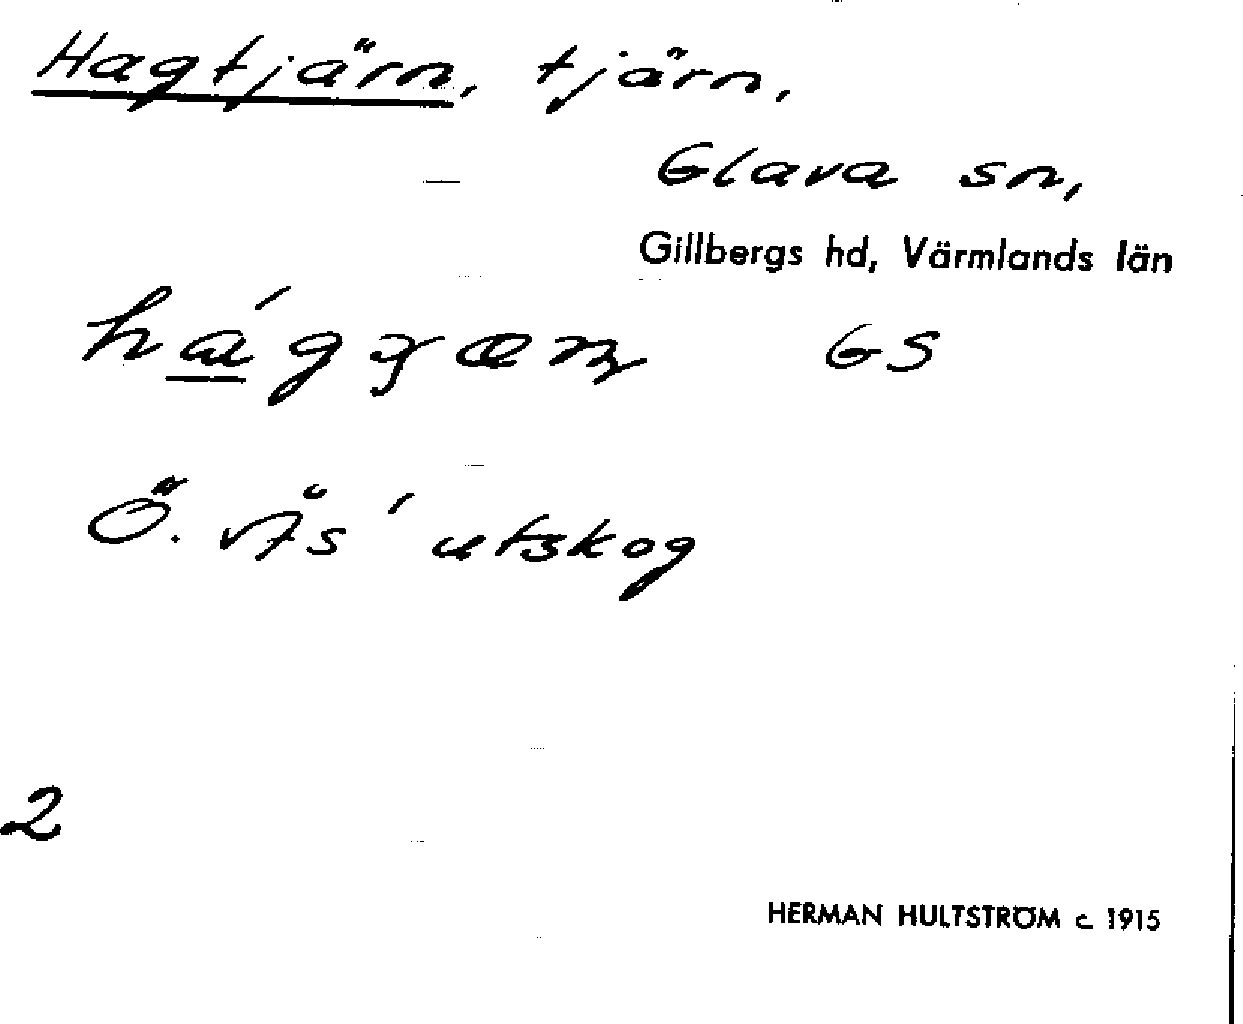 Hagtjärn, tjärn,
Glava sn,
Gillbergs hd, Värmlands län
GS
Ö. Ås' utskog
2
HERMAN HULTSTRÖM c. 1915